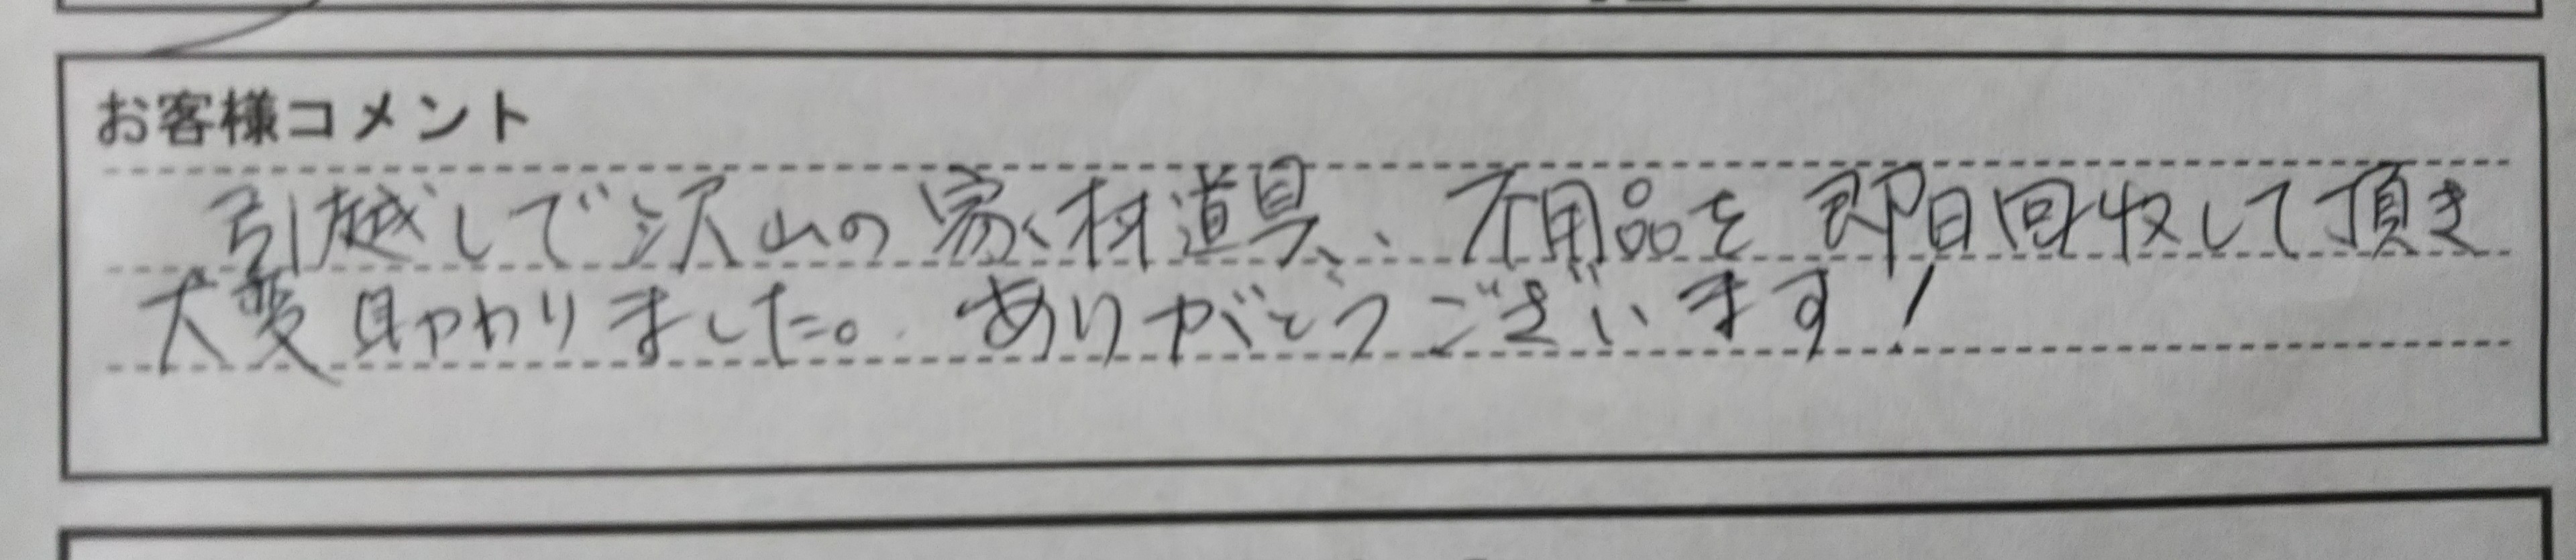 お客様コメント
引越しで沢山の家材道具、不用品を即日回収して頂き
大変助かりました。ありがとうございます!